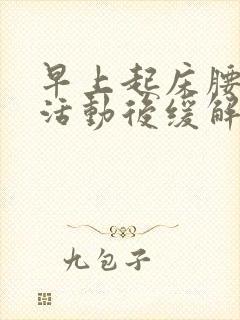 早上起床腰
活動後缓解
九包子